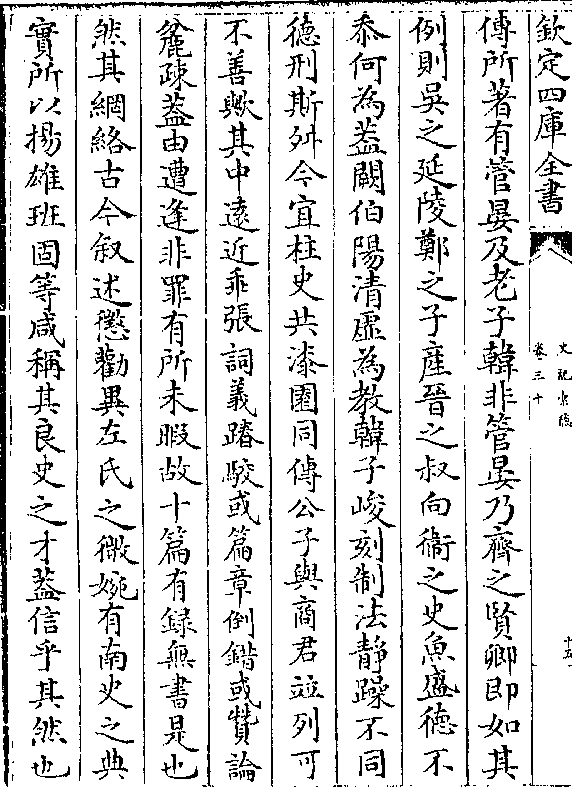 欽定四庫全書
史記索隱
卷三十
傳所著有管晏及老子韓非管晏乃齊之賢卿即如其
例則吳之延陵鄭之子産晉之叔向衞之史魚盛德不
忝何為葢闕伯陽清虛為教韓子峻刻制法靜躁不同
德刑斯舛今宜柱史共漆園同傳公子與商君並列可
不善歟其中遠近乖張詞義踳駮或篇章倒錯或贊論
麄疎葢由遭逢非罪有所未暇故十篇有録無書是也
然其網絡古今叙述懲勸異左氏之微婉有南史之典
實所以揚雄班固等咸稱其良史之才葢信乎其然也